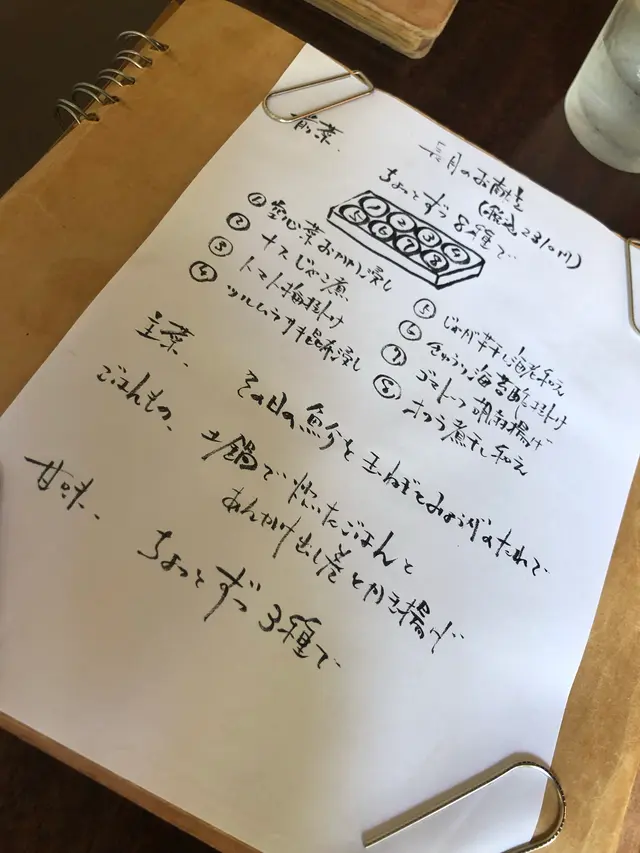 長月のお献立
(税込2310円)
前菜、
ちょっとずつ8種で
①②③④
⑤⑥⑦⑧
①空心菜おかか浸し
②ナスじゃこ煮
③トマト梅掛け
④ツルムラサキ昆布浸し
⑤じゃが芋干し海老和え
⑥きゅうり海苔酢掛け
⑦ゴマトーフ胡麻揚げ
⑧オクラ煮干し和え
主菜、
その日の魚介と玉ねぎとみょうがのたれで
ごはんもの、
土鍋で炊いたごはんと
あんかけ出し巻とかき揚げ
甘味、
ちょっとずつ3種で